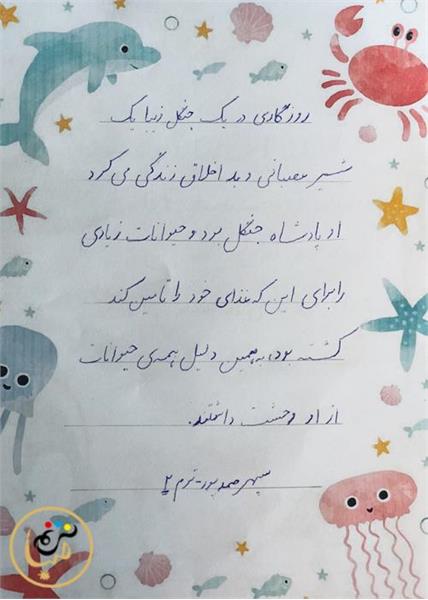 روزگاری در یک جنگل زیبا یک
شیر عصبانی و بد اخلاق زندگی می کرد
او پادشاه جنگل بود و حیوانات زیادی
را برای این که غذای خود را تامین کند
کشته بود، به همین دلیل همه‌ی حیوانات
از او وحشت داشتند.
سپهر صمدپور - ترم ۲